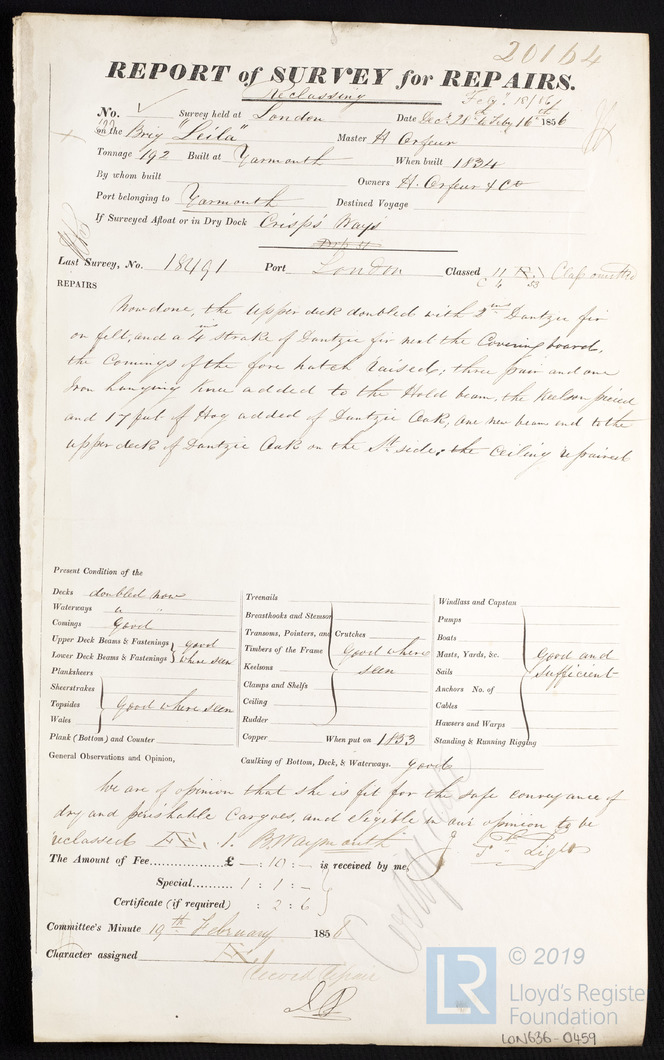 20164
REPORT of SURVEY for REPAIRS.
Reclassing
No. Survey held at London Date Dec. 21st to Feby 16th 1856
on the Brig "Leila" Master H Orfeur
Tonnage 192 Built at Yarmouth When built 1834
By whom built Owners H. Orfeur & Co
Port belonging to Yarmouth Destined Voyage
If Surveyed Afloat or in Dry Dock Crisp's Ways
Last Survey, No. 18491 Port London Classed
REPAIRS
Now done, the Upper deck doubled with 2 ins Dantzic fir
on felt, and a 4 ins strake of Dantzic fir next the Covering board,
the Comings of the fore hatch raised; three pair and one
Iron hanging Knee added to the Hold beams, the Keelson pieced
and 17 feet of Hog added of Dantzic Oak, one new beam end to the
upper deck of Dantzic Oak on the St. side, the Ceiling repaired
Present Condition of the
Decks doubled now
Waterways "
Comings Good
Upper Deck Beams & Fastenings good
Lower Deck Beams & Fastenings where seen
Planksheers
Sheerstrakes
Topsides Good where seen
Wales
Plank (Bottom) and Counter
Treenails
Breasthooks and Stemson
Transoms, Pointers, and Crutches
Timbers of the Frame Good where
Keelsons seen
Clamps and Shelfs
Ceiling
Rudder
Copper When put on 1853
Windlass and Capstan
Pumps
Boats
Masts, Yards, &c. Good and
Sails sufficient
Anchors No. of
Cables
Hawsers and Warps
Standing & Running Rigging
General Observations and Opinion, Caulking of Bottom, Deck, & Waterways. Good
We are of opinion that she is fit for the safe conveyance of
dry and perishable Cargoes, and eligible in our opinion to be
reclassed Æ. 1. B Waymouth
The Amount of Fee............... £ — : 10 : — is received by me,
Special.......... 1 : 1 : —
Certificate (if required) : 2 : 6
Committee's Minute 19th February 1856
Character assigned Æ 1
© 2019
LR
Lloyd's Register
Foundation
LON636-0459